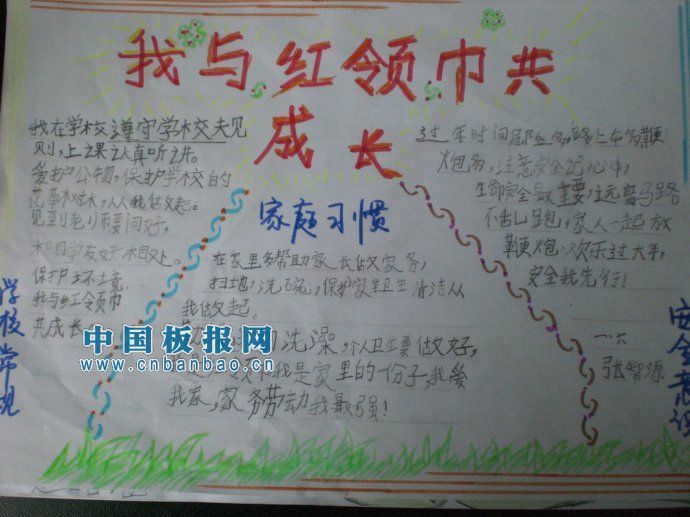 我与红领巾共
成长
学校常规
我在学校遵守学校夫见
则，上课认真听讲。
爱护公物，保护学校的
花草树木，从我做起。
见到老师要问好，
和同学友好相处。
保护环境
我与红领巾
共成长
家庭习惯
在家里多帮助家长做家务，
扫地，洗碗，保护家里卫生清洁从
我做起。
洗澡，个人卫生要做好，
我是家里的一份子我爱
我家，家务劳动我最强！
安全意识
过年时间危险多，路上车多鞭
炮多，注意安全记心中，
生命安全最重要，过马路
不乱跑，家人一起放
鞭炮，欢乐过大年，
安全我先行！
一六
张智源
中国板报网
www.cnbanbao.cn